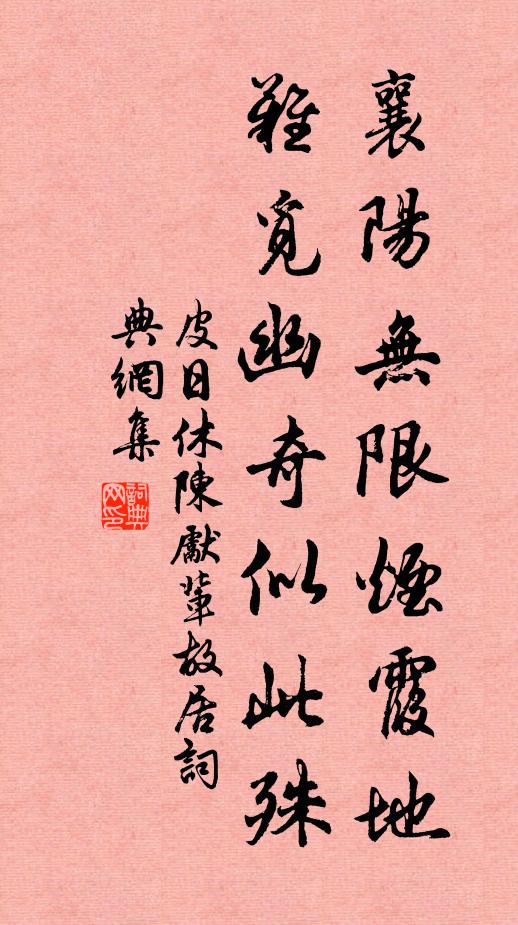 襄陽無限煙霞地
難覓幽奇似此殊
皮日休陳獻輩故居詞
典網集
詞典
网印